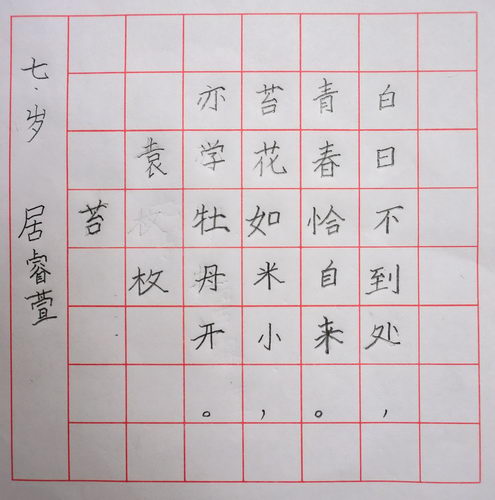 白日不到处，
青春恰自来。
苔花如米小，
亦学牡丹开。
袁枚
苔
七·岁 居睿萱